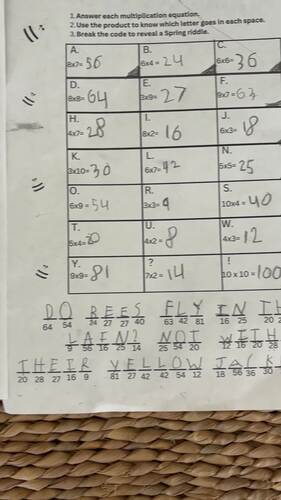 1. Answer each multiplication equation.
2. Use the product to know which letter goes in each space.
3. Break the code to reveal a Spring riddle.
A. B. C.
8x7= 56 6x4 = 24 6x6= 36
D. E. F.
8x8= 64 3x9= 27 9x7= 63
H. I. J.
4x7= 28 8x2= 16 6x3= 18
K. L. N.
3x10= 30 6x7= 42 5x5= 25
O. R. S.
6x9 = 54 3x3= 9 10x4 = 40
T. U. W.
5x4= 20 4x2 = 8 4x3= 12
Y. ? !
9x9= 81 7x2 = 14 10 x 10 = 100
DO BEES FLY IN TH
64 54 24 27 27 40 63 42 81 16 25 20 2
LAIN? NOT WITH
9 56 16 25 14 25 54 20 12 16 20 28
THEIR YELLOW JACK
20 28 27 16 9 81 27 42 42 54 12 18 56 36 30